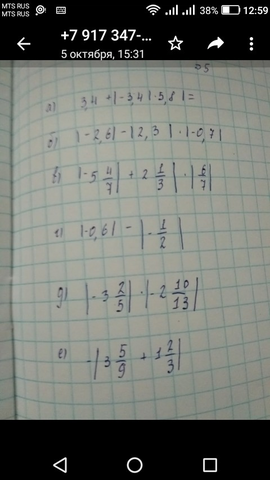 MTS RUS
MTS RUS
38% 12:59
+7 917 347-...
5 октября, 15:31
а) 3,4 + |-3,4| · 5,8| =
б) |-2,6| - |2,3| · |-0,7|
в) |-5 4/7| + 2 1/3| · |6/7|
г) |-0,6| - |-1/2|
д) |-3 2/5| · |-2 10/13|
е) -|3 5/9 + 1 2/3|